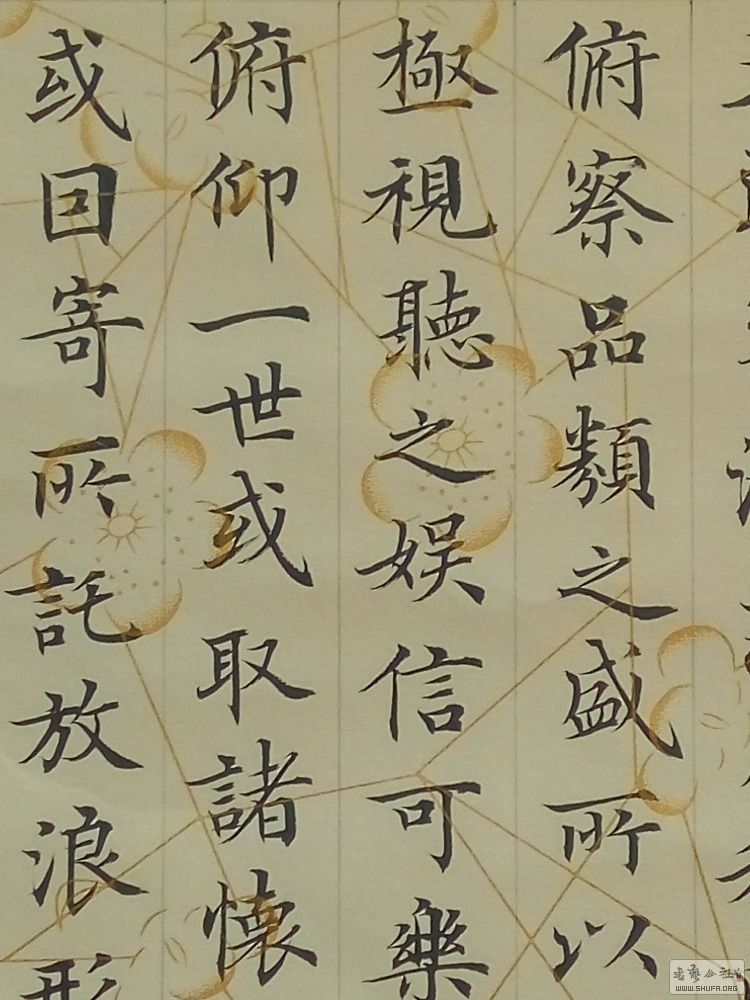 俯察品類之盛所以
極視聽之娛信可樂
俯仰一世或取諸懷
或因寄所託放浪形
WWW.SHUFA.ORG